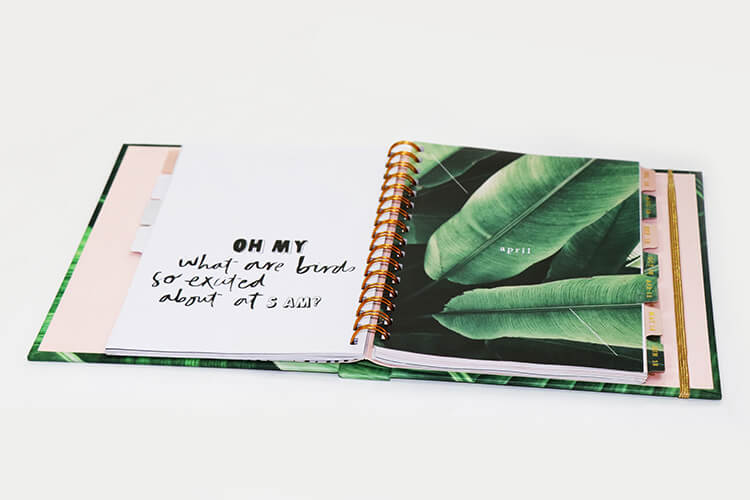 OH MY
what are birds
so excited
about at 5 AM?
april